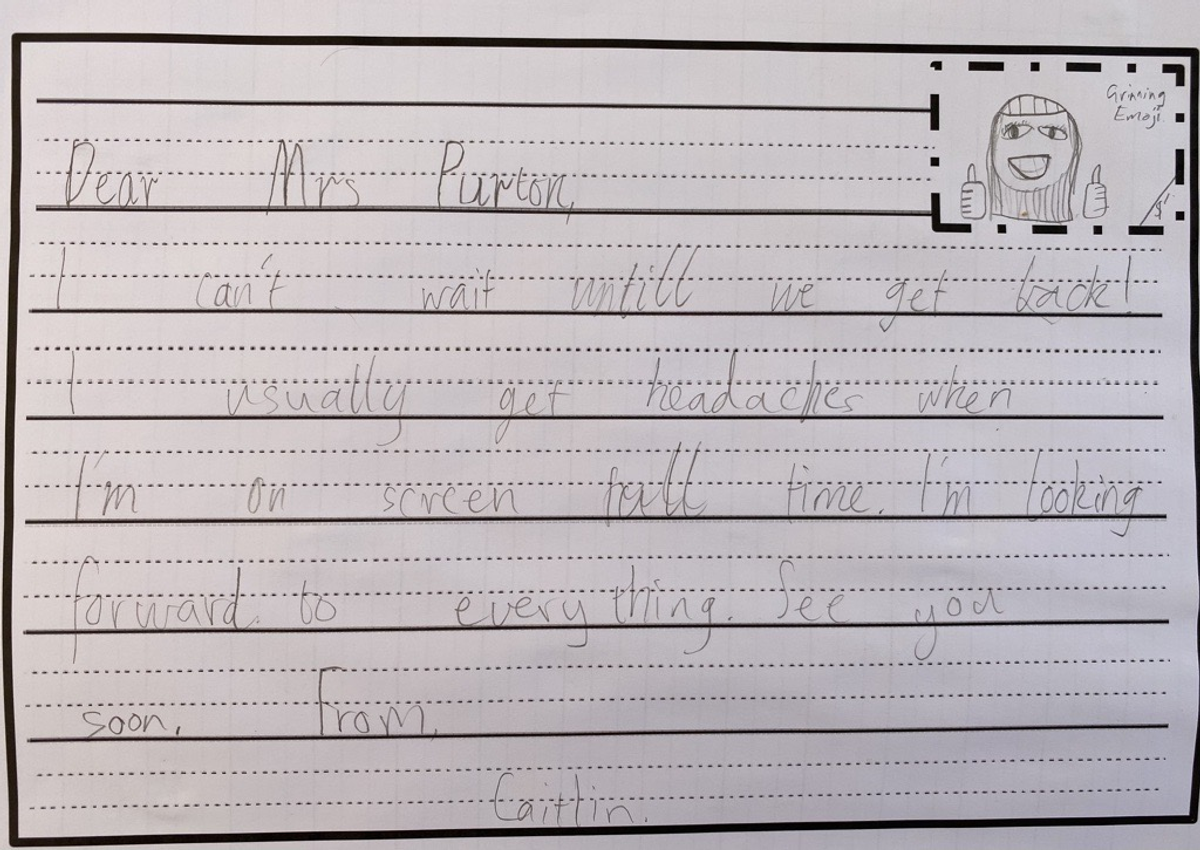 Grinning
Emoji.
$1
Dear Mrs Purton,
I can't wait untill we get back!
I usually get headaches when
I'm on screen full time. I'm looking
forward to everything. See you
soon. From,
Caitlin.